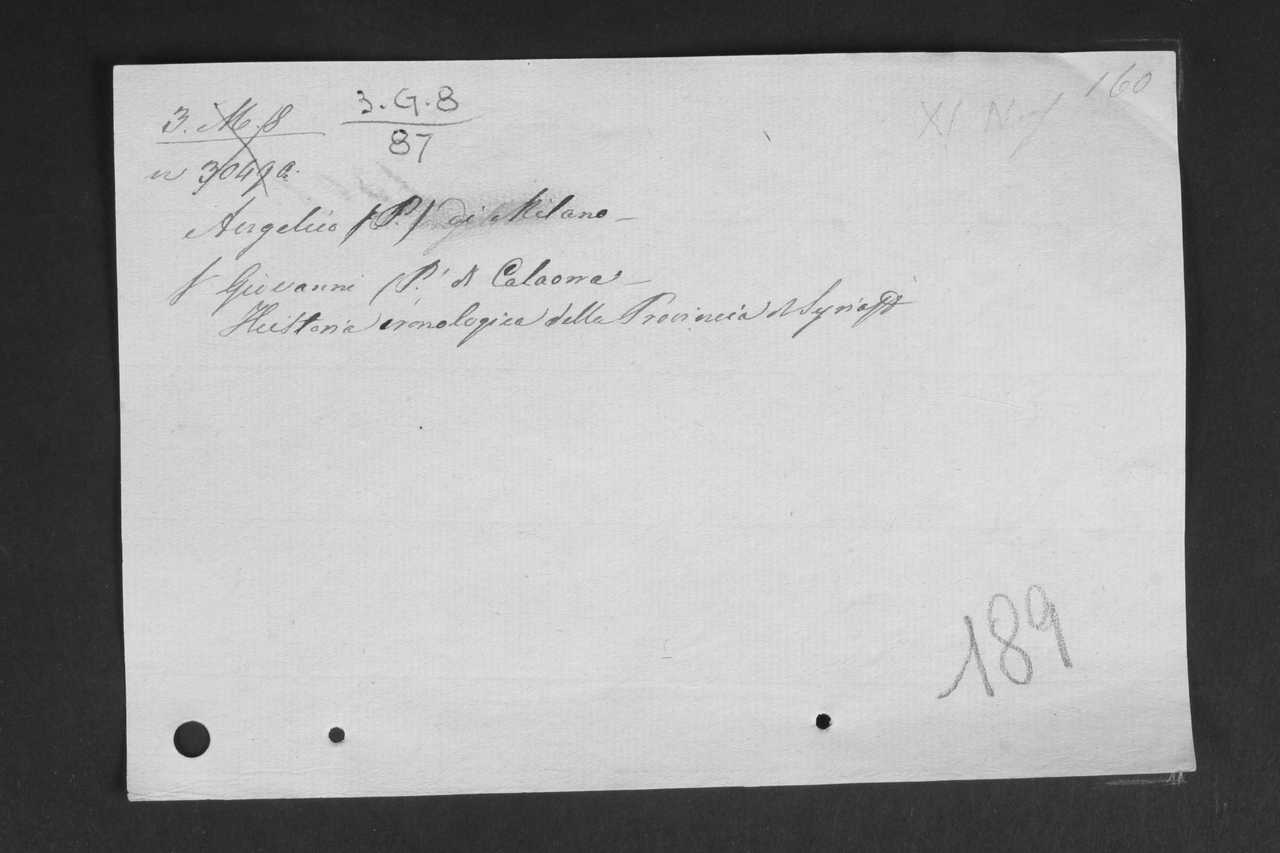 3. M. 8
3. G. 8
87
n 3049 a.
160
Angelico (P.) di Milano
V Giovanni (P. di Calaorra
Historia cronologica della Provincia di Syria
189